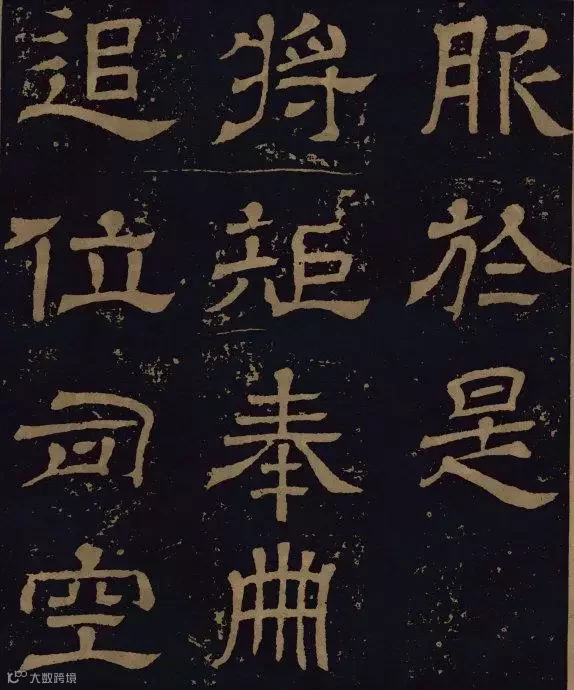 服於是
將矩奉冊
追位司空
大数跨境